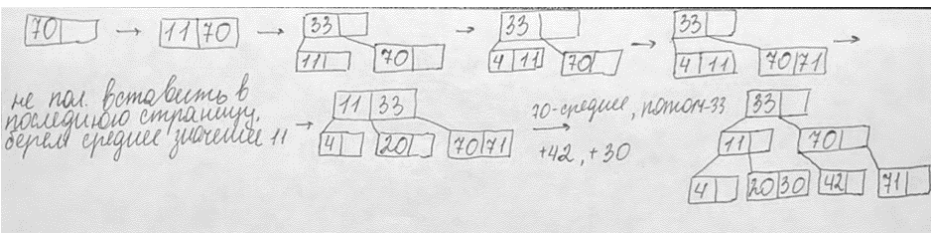 70 → 11 70 → 33 → 33 → 33 →
11 70 4 11 70 4 11 70 71
не пол. вставить в
последнюю страницу,
берем среднее значение 11 →
11 33
4 20 70 71
70-среднее, потом-33
→
+42, +30
33
11 70
4 20 30 42 71